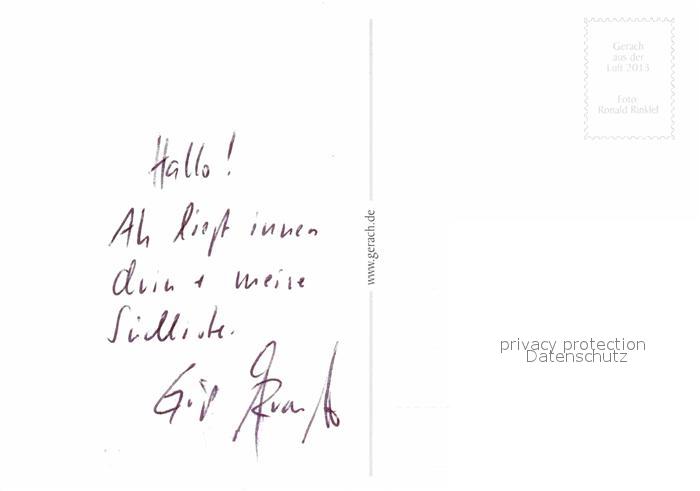 Hallo!
Ak liegt innen
drin + meine
Suchliste.
Gruß
www.gerach.de
Gerach
aus der
Luft 2013
Foto:
Ronald Rinklef
privacy protection
Datenschutz